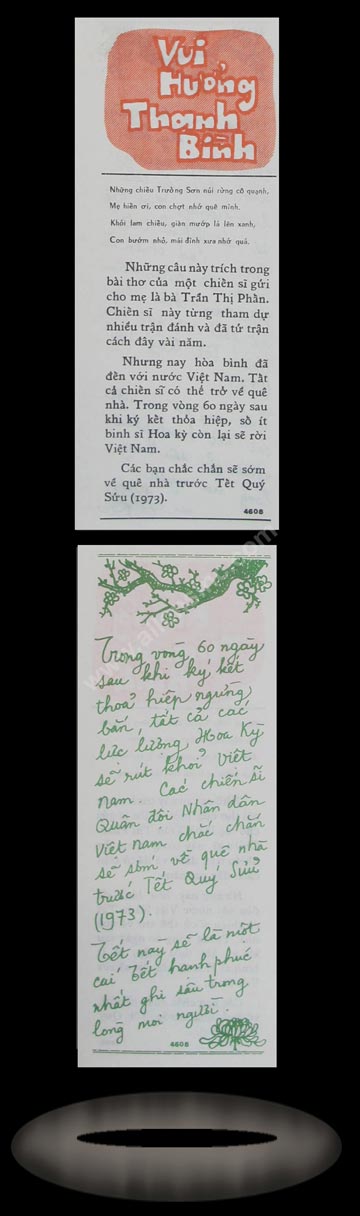 Vui
Hưởng
Thanh
Bình
Những chiều Trường Sơn núi rừng cô quạnh,
Mẹ hiền ơi, con chợt nhớ quê mình.
Khói lam chiều, giàn mướp lá lên xanh,
Con bướm nhỏ, mái đình xưa nhớ quá.
Những câu này trích trong
bài thơ của một chiến sĩ gửi
cho mẹ là bà Trần Thị Phần.
Chiến sĩ này từng tham dự
nhiều trận đánh và đã tử trận
cách đây vài năm.
Nhưng nay hòa bình đã
đến với nước Việt Nam. Tất
cả chiến sĩ có thể trở về quê
nhà. Trong vòng 60 ngày sau
khi ký kết thỏa hiệp, số ít
binh sĩ Hoa kỳ còn lại sẽ rời
Việt Nam.
Các bạn chắc chắn sẽ sớm
về quê nhà trước Tết Quý
Sửu (1973).
4608
Trong vòng 60 ngày
sau khi ký kết
thoả hiệp ngưng
bắn, tất cả các
lực lượng Hoa Kỳ
sẽ rút khỏi Việt
nam. Các chiến sĩ
Quân đội Nhân dân
Việt nam chắc chắn
sẽ sớm về quê nhà
trước Tết Quý Sửu
(1973).
Tết này sẽ là một
cái Tết hạnh phúc
nhất ghi sâu trong
lòng mọi người.
4608